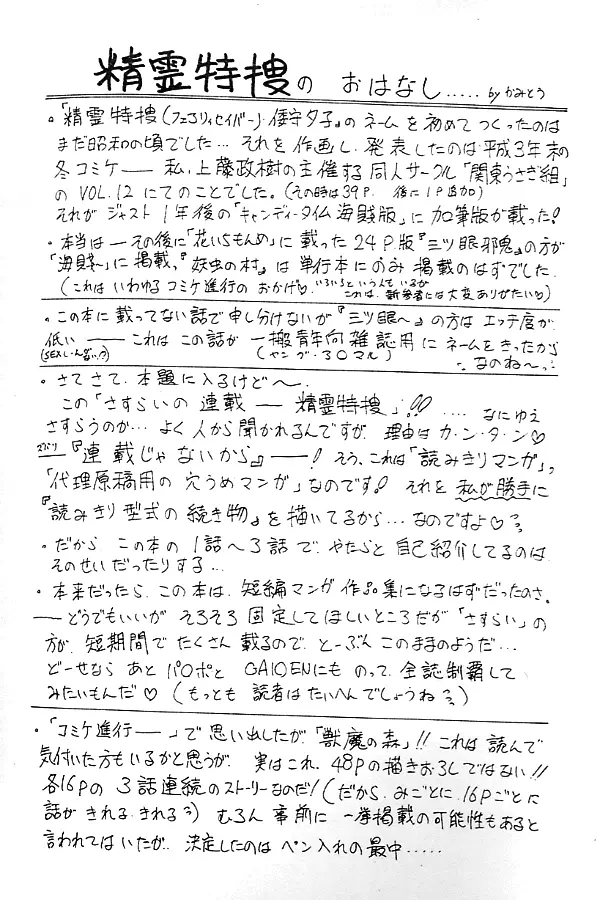 精霊特捜の おはなし..... by かみとう
・「精霊特捜(フェアリィセイバー)倭守夕子』のネームを初めてつくったのは
まだ昭和の頃でした… それを作画し、発表したのは平成3年末の
冬コミケ── 私、上藤政樹の主催する同人サークル「関東うさぎ組」
の VOL.12 にてのことでした。(その時は39P. 後に1P追加)
それが ジャスト1年後の「キャンディータイム海賊版」に 加筆版が載った!
・本当は ─ その後に「花いちもんめ」に載った24P版『三ツ眼邪鬼』の方が
「海賊〜」に掲載、『妖虫の村』は単行本にのみ掲載のはずでした.
(これは いわゆる コミケ進行の おかげ♡ いろいろという人もいるが これは、新参者には大変ありがたい♡)
・この本に載ってない話で申し分けないが『三ツ眼〜』の方は エッチ度が
低い ── これは この話が 一搬青年向雑誌用に ネームをきったから
(SEXしーんない?) (ヤング・30マル) …なのね〜…?
・さてさて、本題に入るけど〜.
この「さすらいの 連載 ─ 精霊特捜」!! .... なにゆえ
さすらうのか… よく人から聞かれるんですが、理由は カ・ン・タ・ン♡
ズバリ『連載じゃないから』──! そう、これは「読みきりマンガ」,
「代理原稿用の 穴うめマンガ」なのです! それを 私が勝手に
『読みきり型式の続き物』を描いてるから… なのですよ♡?
・だから この本の 1話〜3話で、やたらと 自己紹介してるのは
そのせいだったりする…
・本来だったら、この本は、短編マンガ作品集になるはずだったのさ.
──どうでもいいが そろそろ 固定してほしいところだが「さすらい」の
方が、短期間で たくさん載るので、と〜ぶん このままのようだ…
ど〜せなら あと パロポと GAIDENにも のって、全誌制覇して
みたいもんだ♡ (もっとも 読者は たいへんでしょうね?)
・「コミケ進行──」で思い出したが、「獣魔の森」!! これは 読んで
気付いた方もいるかと思うが、実はこれ、48Pの描きおろしではない!!
各16Pの 3話連続のストーリーなのだ! (だから、みごとに、16Pごとに
話が きれる、きれる?) むろん 事前に 一挙掲載の可能性もあると
言われてはいたが、決定したのは ペン入れの最中.....